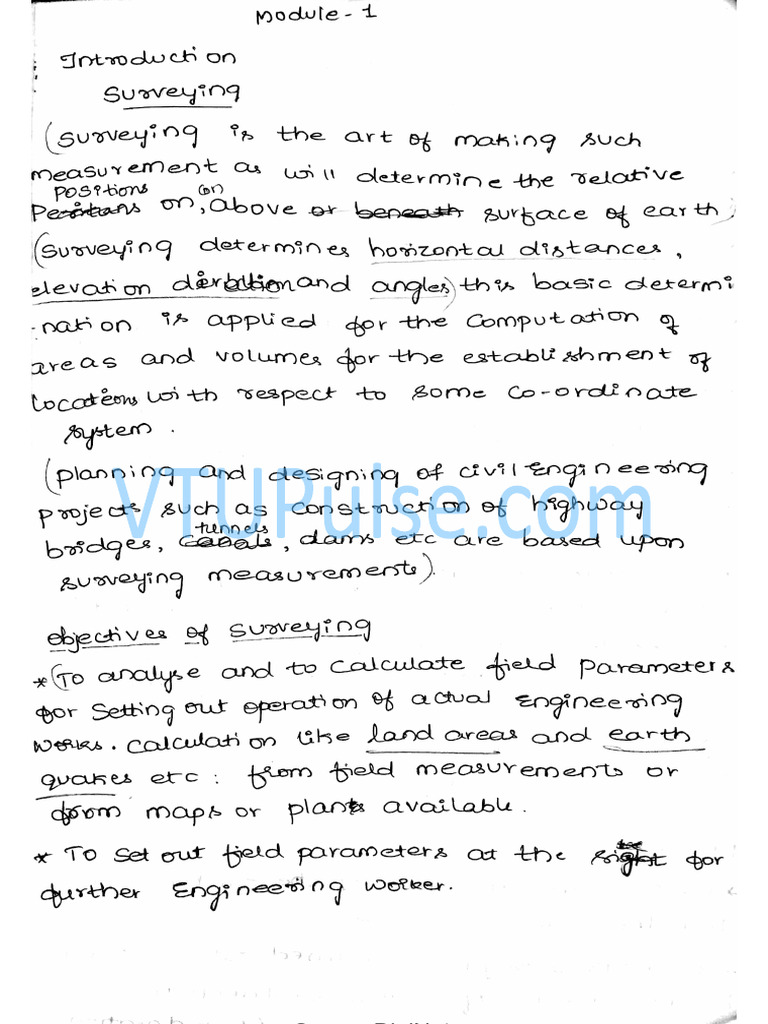 Module - 1
Introduction
Surveying
(Surveying is the art of making such
measurement as will determine the relative
positions (on)
on, above or beneath surface of earth
(Surveying determines horizontal distances,
elevation direction and angles) this basic determi
-nation is applied for the computation of
areas and volumes for the establishment of
locations with respect to some co-ordinate
system.
(planning and designing of civil Engineering
VTUPulse.com
projects such as construction of highway
tunnels
bridges, canals, dams etc are based upon
surveying measurements).
objectives of surveying
* (To analyse and to calculate field parameters
for setting out operation of actual Engineering
works. calculation like land areas and earth
quakes etc: from field measurements or
from maps or plans available.
* To set out field parameters at the for
further Engineering worker.